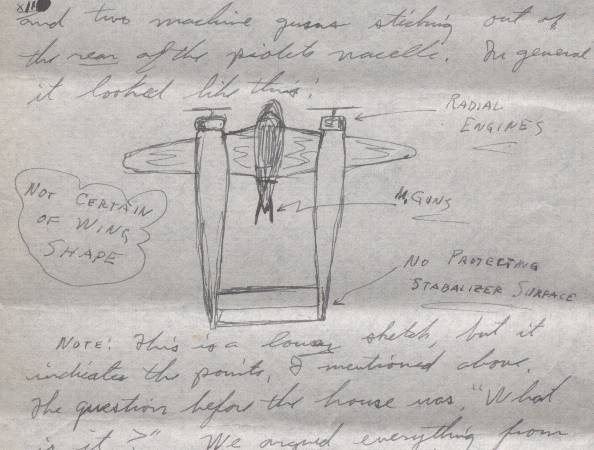 and two machine guns sticking out of
the rear of the piolets nacelle. In general
it looked like this:
RADIAL
ENGINES
NOT CERTAIN
OF WING
SHAPE
GUNS
NO PROTECTING
STABALIZER SURFACE
NOTE: This is a lousy sketch, but it
indicates the points, I mentioned above.
The question before the house was, "What
is it?" We argued everything from